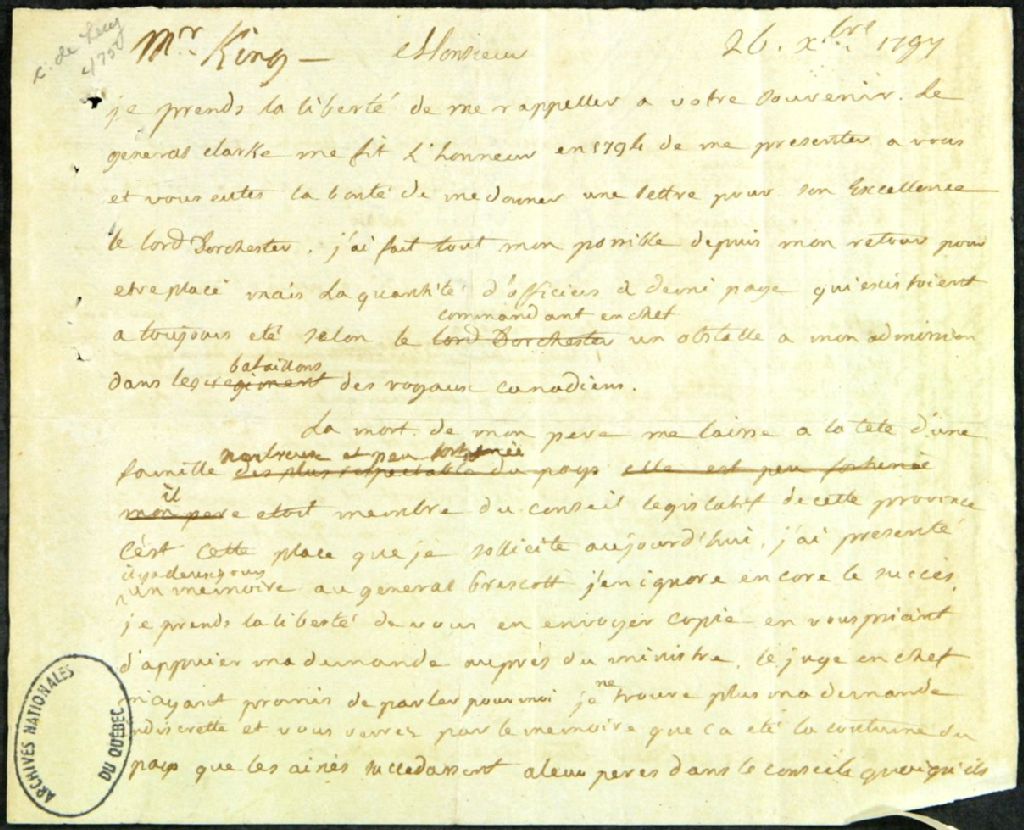 c. de Lery
1797
Mr King — Monsieur 26. xbre 1797
je prends la liberté de me rappeller a votre souvenir. Le
general clarke me fit l'honneur en 1794 de me presenter a vous
et vous eutes la bonté de me donner une lettre pour son Excellence
le lord Dorchester. j'ai fait tout mon possible depuis mon retour pour
etre placé mais la quantité d'officiers a demi paye qui existoient
commandant en chef
a toujours eté selon le lord Dorchester un obstacle a mon admission
bataillons
dans les regiment des royaux canadiens.
La mort de mon pere me laisse a la tete d'une
nombreuse et peu fortunée
famille des plus respectable du pays elle est peu fortunée
il
mon pere etoit membre du conseil legislatif de cette province
C'est cette place que je sollicite aujourd'hui, j'ai presenté
il y a deux jours
un memoire au general Prescott j'en ignore encore le succès,
je prends la liberté de vous en envoyer copie en vous priant
d'appuier ma demande auprés du ministre, le juge en chef
m'ayant promis de parler pour moi je ne trouve plus ma demande
indiscrette et vous verrez par le memoire que ca eté la coutume du
pays que les ainés succedassent a leurs peres dans le conseil quoiqu'ils
ARCHIVES NATIONALES
DU QUÉBEC